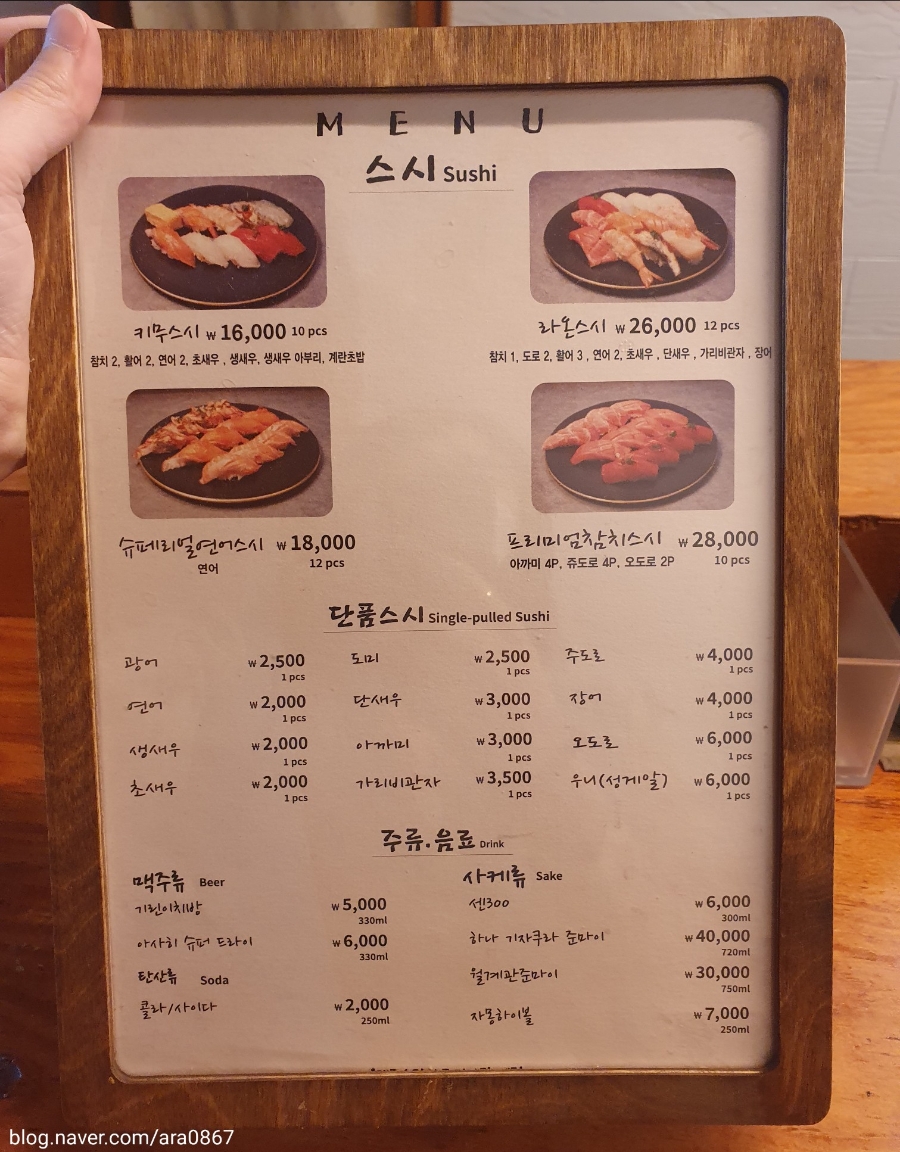 MENU
스시 Sushi
키무스시 ₩ 16,000 10 pcs
참치 2, 활어 2, 연어 2, 초새우 , 생새우, 생새우 아부리, 계란초밥
라온스시 ₩ 26,000 12 pcs
참치 1, 도로 2, 활어 3 , 연어 2, 초새우 , 단새우 , 가리비관자 , 장어
슈페리얼연어스시 ₩ 18,000
연어 12 pcs
프리미엄참치스시 ₩ 28,000
아까미 4P, 쥬도로 4P, 오도로 2P 10 pcs
단품스시 Single-pulled Sushi
광어 ₩ 2,500
1 pcs
도미 ₩ 2,500
1 pcs
주도로 ₩ 4,000
1 pcs
연어 ₩ 2,000
1 pcs
단새우 ₩ 3,000
1 pcs
장어 ₩ 4,000
1 pcs
생새우 ₩ 2,000
1 pcs
아까미 ₩ 3,000
1 pcs
오도로 ₩ 6,000
1 pcs
초새우 ₩ 2,000
1 pcs
가리비관자 ₩ 3,500
1 pcs
우니(성게알) ₩ 6,000
1 pcs
주류.음료 Drink
맥주류 Beer
기린이치방 ₩ 5,000
330ml
아사히 슈퍼 드라이 ₩ 6,000
330ml
탄산류 Soda
콜라/사이다 ₩ 2,000
250ml
사케류 Sake
센300 ₩ 6,000
300ml
하나 기자쿠라 준마이 ₩ 40,000
720ml
월계관준마이 ₩ 30,000
750ml
자몽하이볼 ₩ 7,000
250ml
blog.naver.com/ara0867